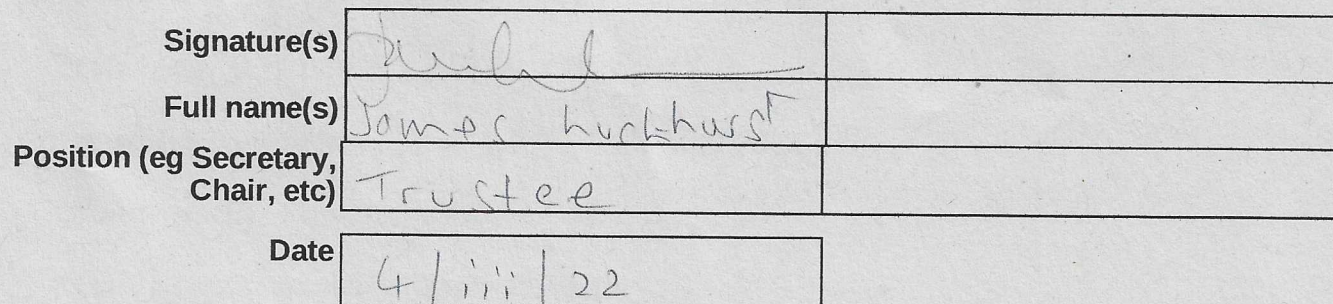 Signature(s)
Full name(s) James Luckhurst
Position (eg Secretary,
Chair, etc) Trustee
Date 4/iii/22